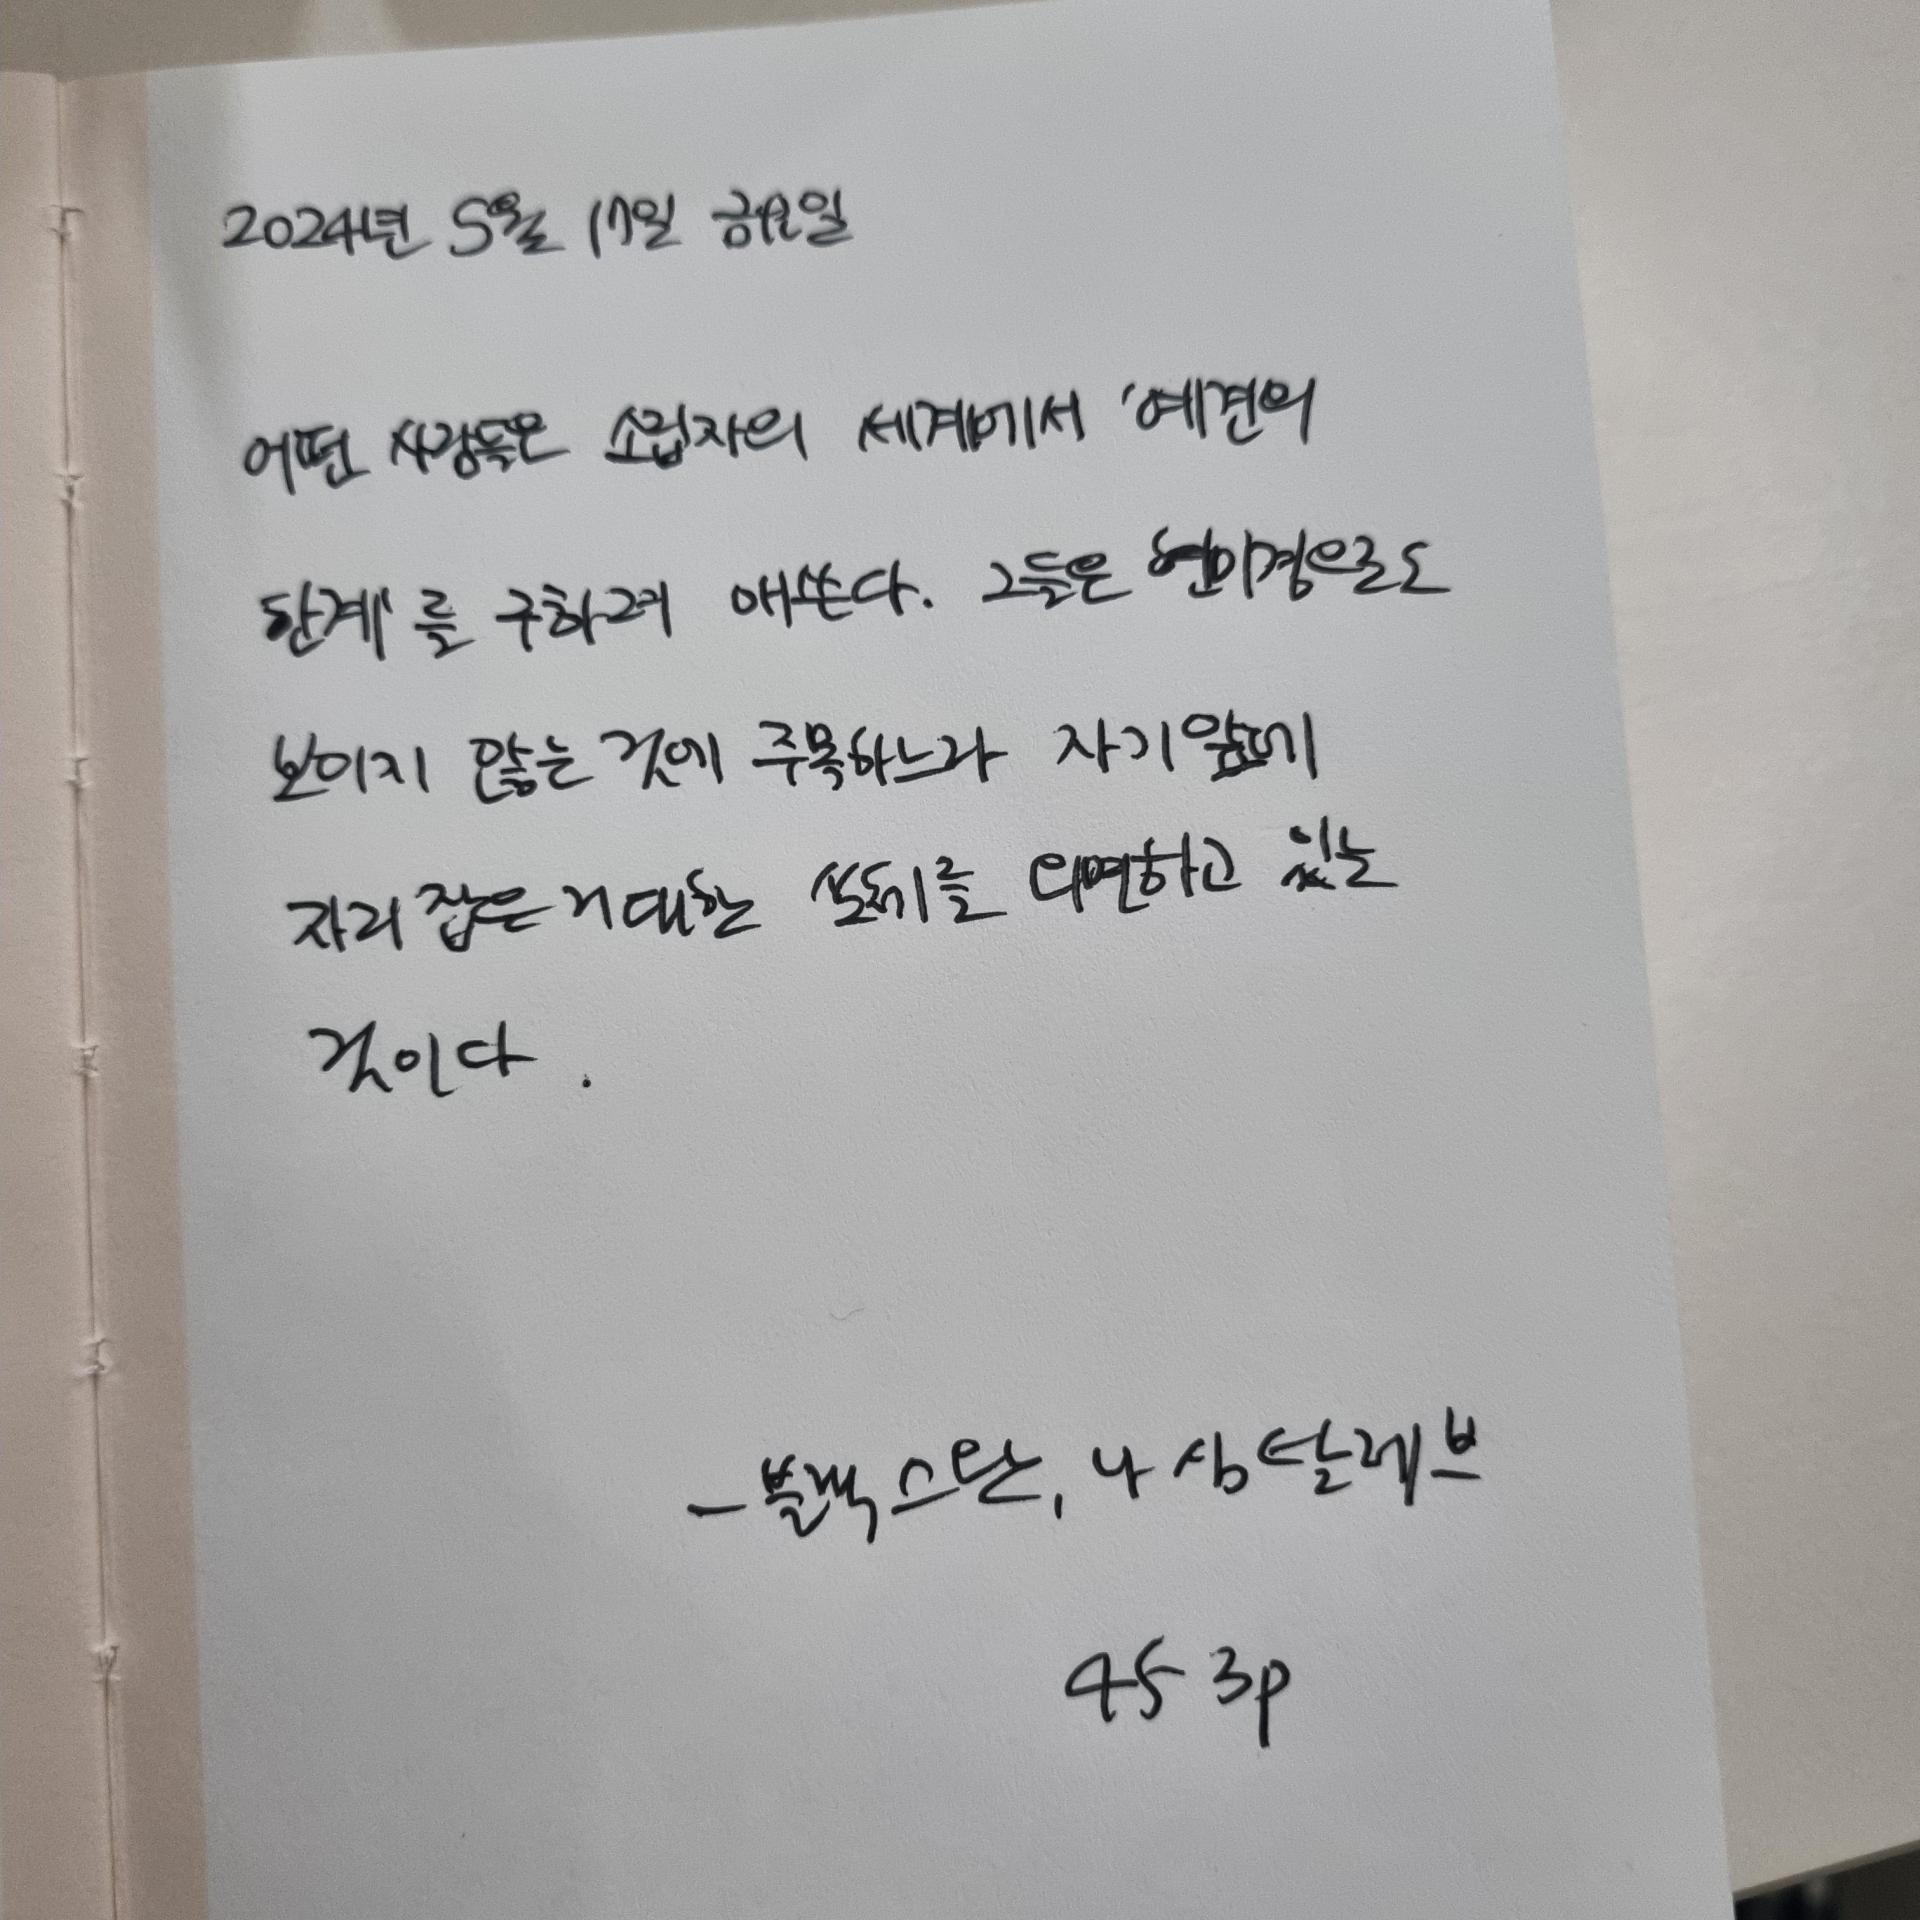 2024년 5월 17일 금요일
어떤 사람들은 소립자의 세계에서 '예견의
한계'를 구하려 애쓴다. 그들은 현미경으로도
보이지 않는 것에 주목하느라 자기 앞에
자리 잡은 거대한 실체를 외면하고 있는
것이다.
-블랙스완, 나심탈레브
453p